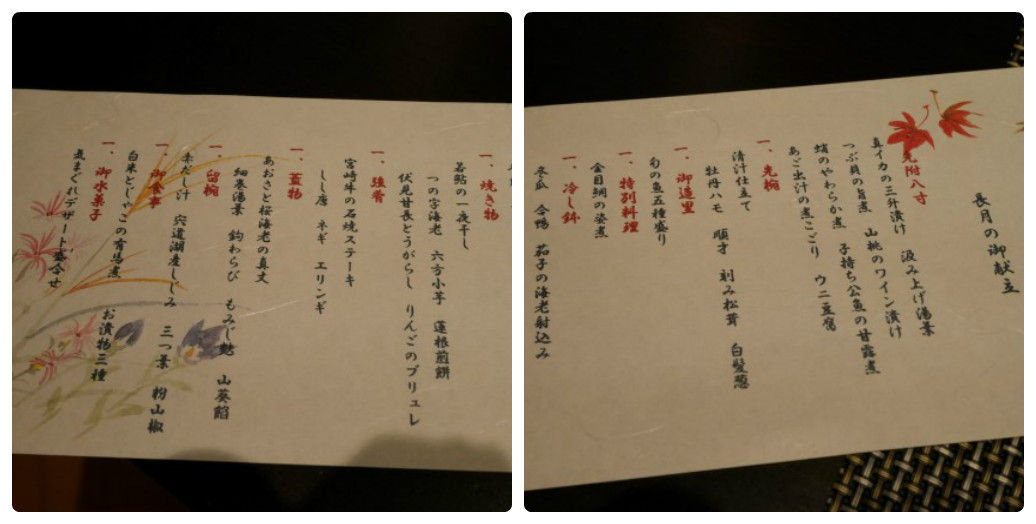 長月の御献立
先附八寸
真イカの三升漬け 汲み上げ湯葉
つぶ貝の旨煮 山桃のワイン漬け
蛸のやわらか煮 子持ち公魚の甘露煮
あご出汁の煮こごり ウニ豆腐
一、先椀
清汁仕立て
牡丹ハモ 順才 刻み松茸 白髪葱
一、御造里
旬の魚五種盛り
一、特別料理
金目鯛の姿煮
一、冷し鉢
冬瓜 合鴨 茄子の海老射込み
一、焼き物
若鮎の一夜干し
つの字海老 六方小芋 蓮根煎餅
伏見甘長とうがらし りんごのブリュレ
一、強肴
宮崎牛の石焼ステーキ
しし唐 ネギ エリンギ
一、蓋物
あおさと桜海老の真丈
細巻湯葉 鈎わらび もみじ麩 山葵餡
一、留椀
赤だし汁 宍道湖産しじみ 三つ葉 粉山椒
一、御食事
白米とじゃこの有馬煮 お漬物三種
一、御水菓子
気まぐれデザート盛合せ